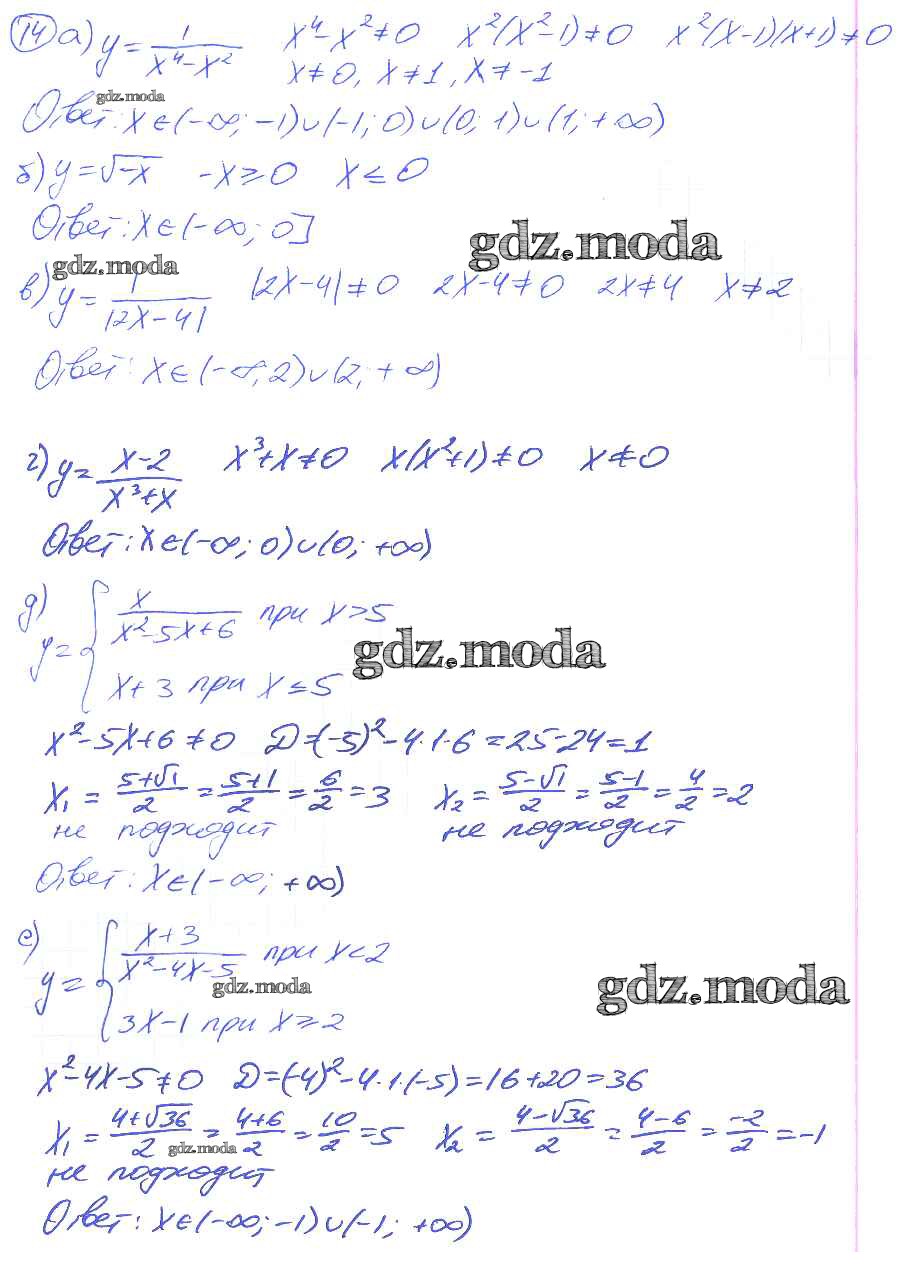 14 а) y = 1/(x⁴-x²) x⁴-x²≠0 x²(x²-1)≠0 x²(x-1)(x+1)≠0
x≠0, x≠1, x≠-1
gdz.moda
Ответ: x∈(-∞; -1)∪(-1; 0)∪(0; 1)∪(1; +∞)
б) y=√-x -x≥0 x≤0
Ответ: x∈(-∞; 0]
gdz.moda
gdz.moda
в) y = 1/|2x-4| |2x-4|≠0 2x-4≠0 2x≠4 x≠2
Ответ: x∈(-∞; 2)∪(2; +∞)
г) y = (x-2)/(x³+x) x³+x≠0 x(x²+1)≠0 x≠0
Ответ: x∈(-∞; 0)∪(0; +∞)
д) y = { x/(x²-5x+6) при x>5
gdz.moda
x+3 при x≤5
x²-5x+6≠0 D=(-5)²-4·1·6=25-24=1
x₁ = (5+√1)/2 = (5+1)/2 = 6/2 = 3 x₂ = (5-√1)/2 = (5-1)/2 = 4/2 = 2
не подходит не подходит
Ответ: x∈(-∞; +∞)
е) y = { (x+3)/(x²-4x-5) при x<2
gdz.moda
gdz.moda
3x-1 при x≥2
x²-4x-5≠0 D=(-4)²-4·1·(-5)=16+20=36
x₁ = (4+√36)/2 = (4+6)/2 = 10/2 = 5 x₂ = (4-√36)/2 = (4-6)/2 = -2/2 = -1
gdz.moda
не подходит
Ответ: x∈(-∞; -1)∪(-1; +∞)